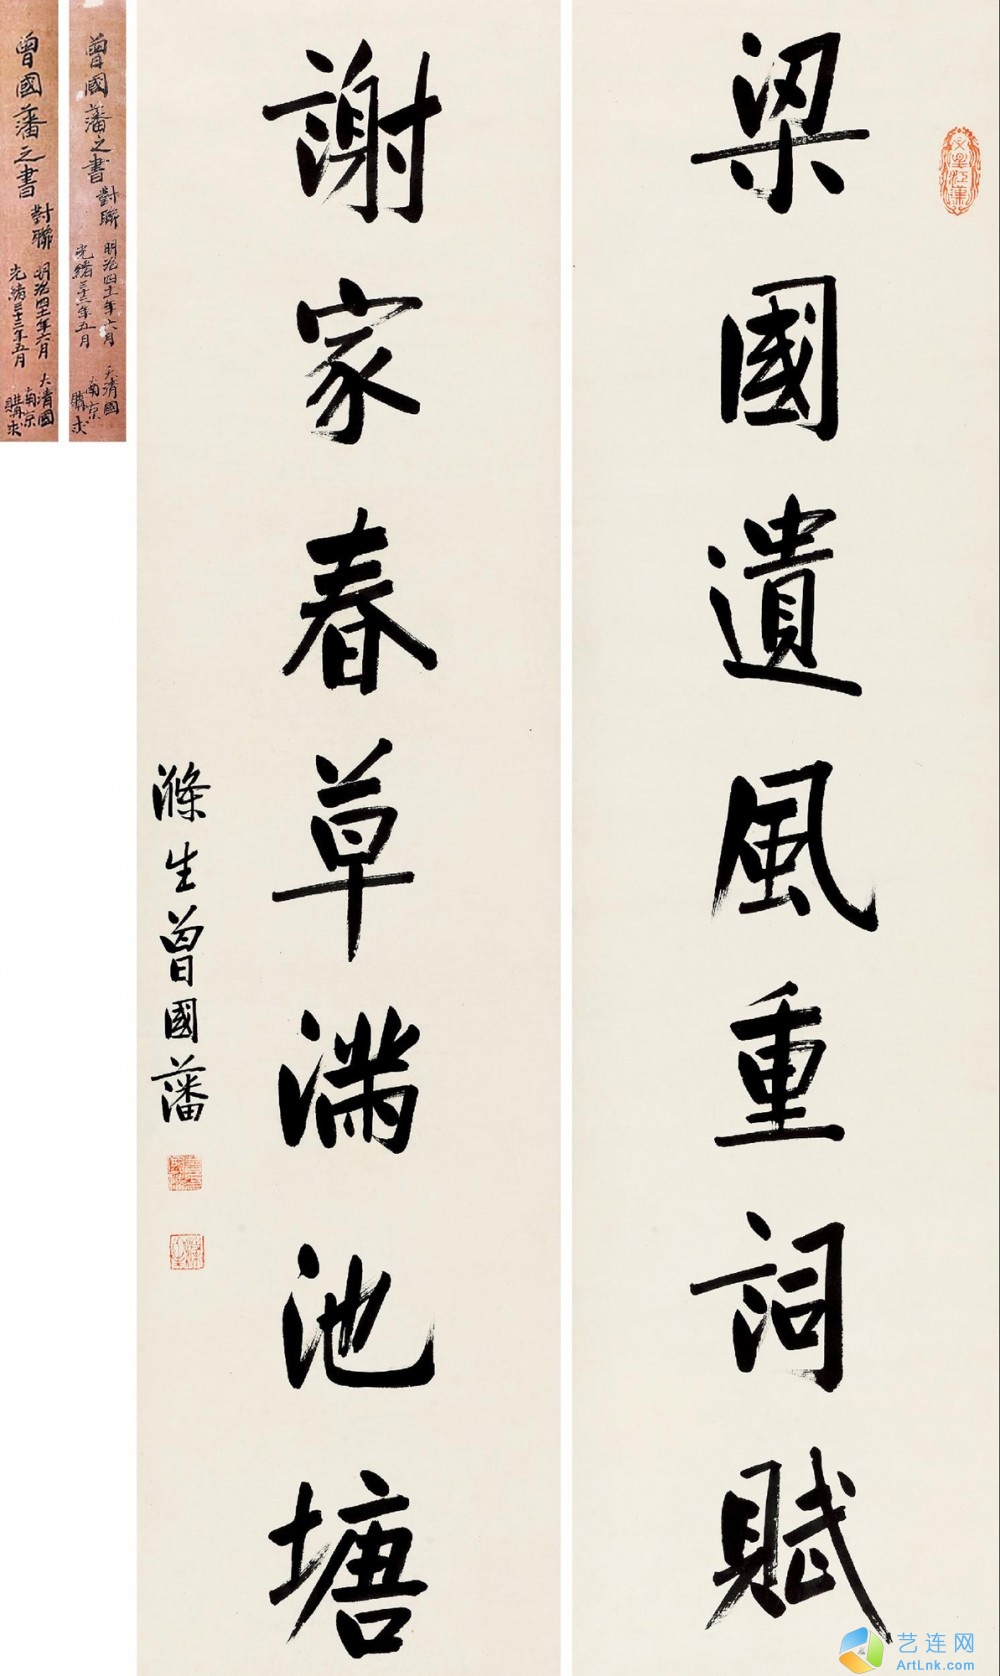 梁國遺風重詞賦
謝家春草滿池塘
滌生曾國藩
曾國藩之書
對聯
明治四十年六月
光緒三十三年五月
大清國
南京
購求
曾國藩之書
對聯
明治四十年六月
光緒三十三年五月
大清國
南京
購求
艺连网
ArtLnk.com